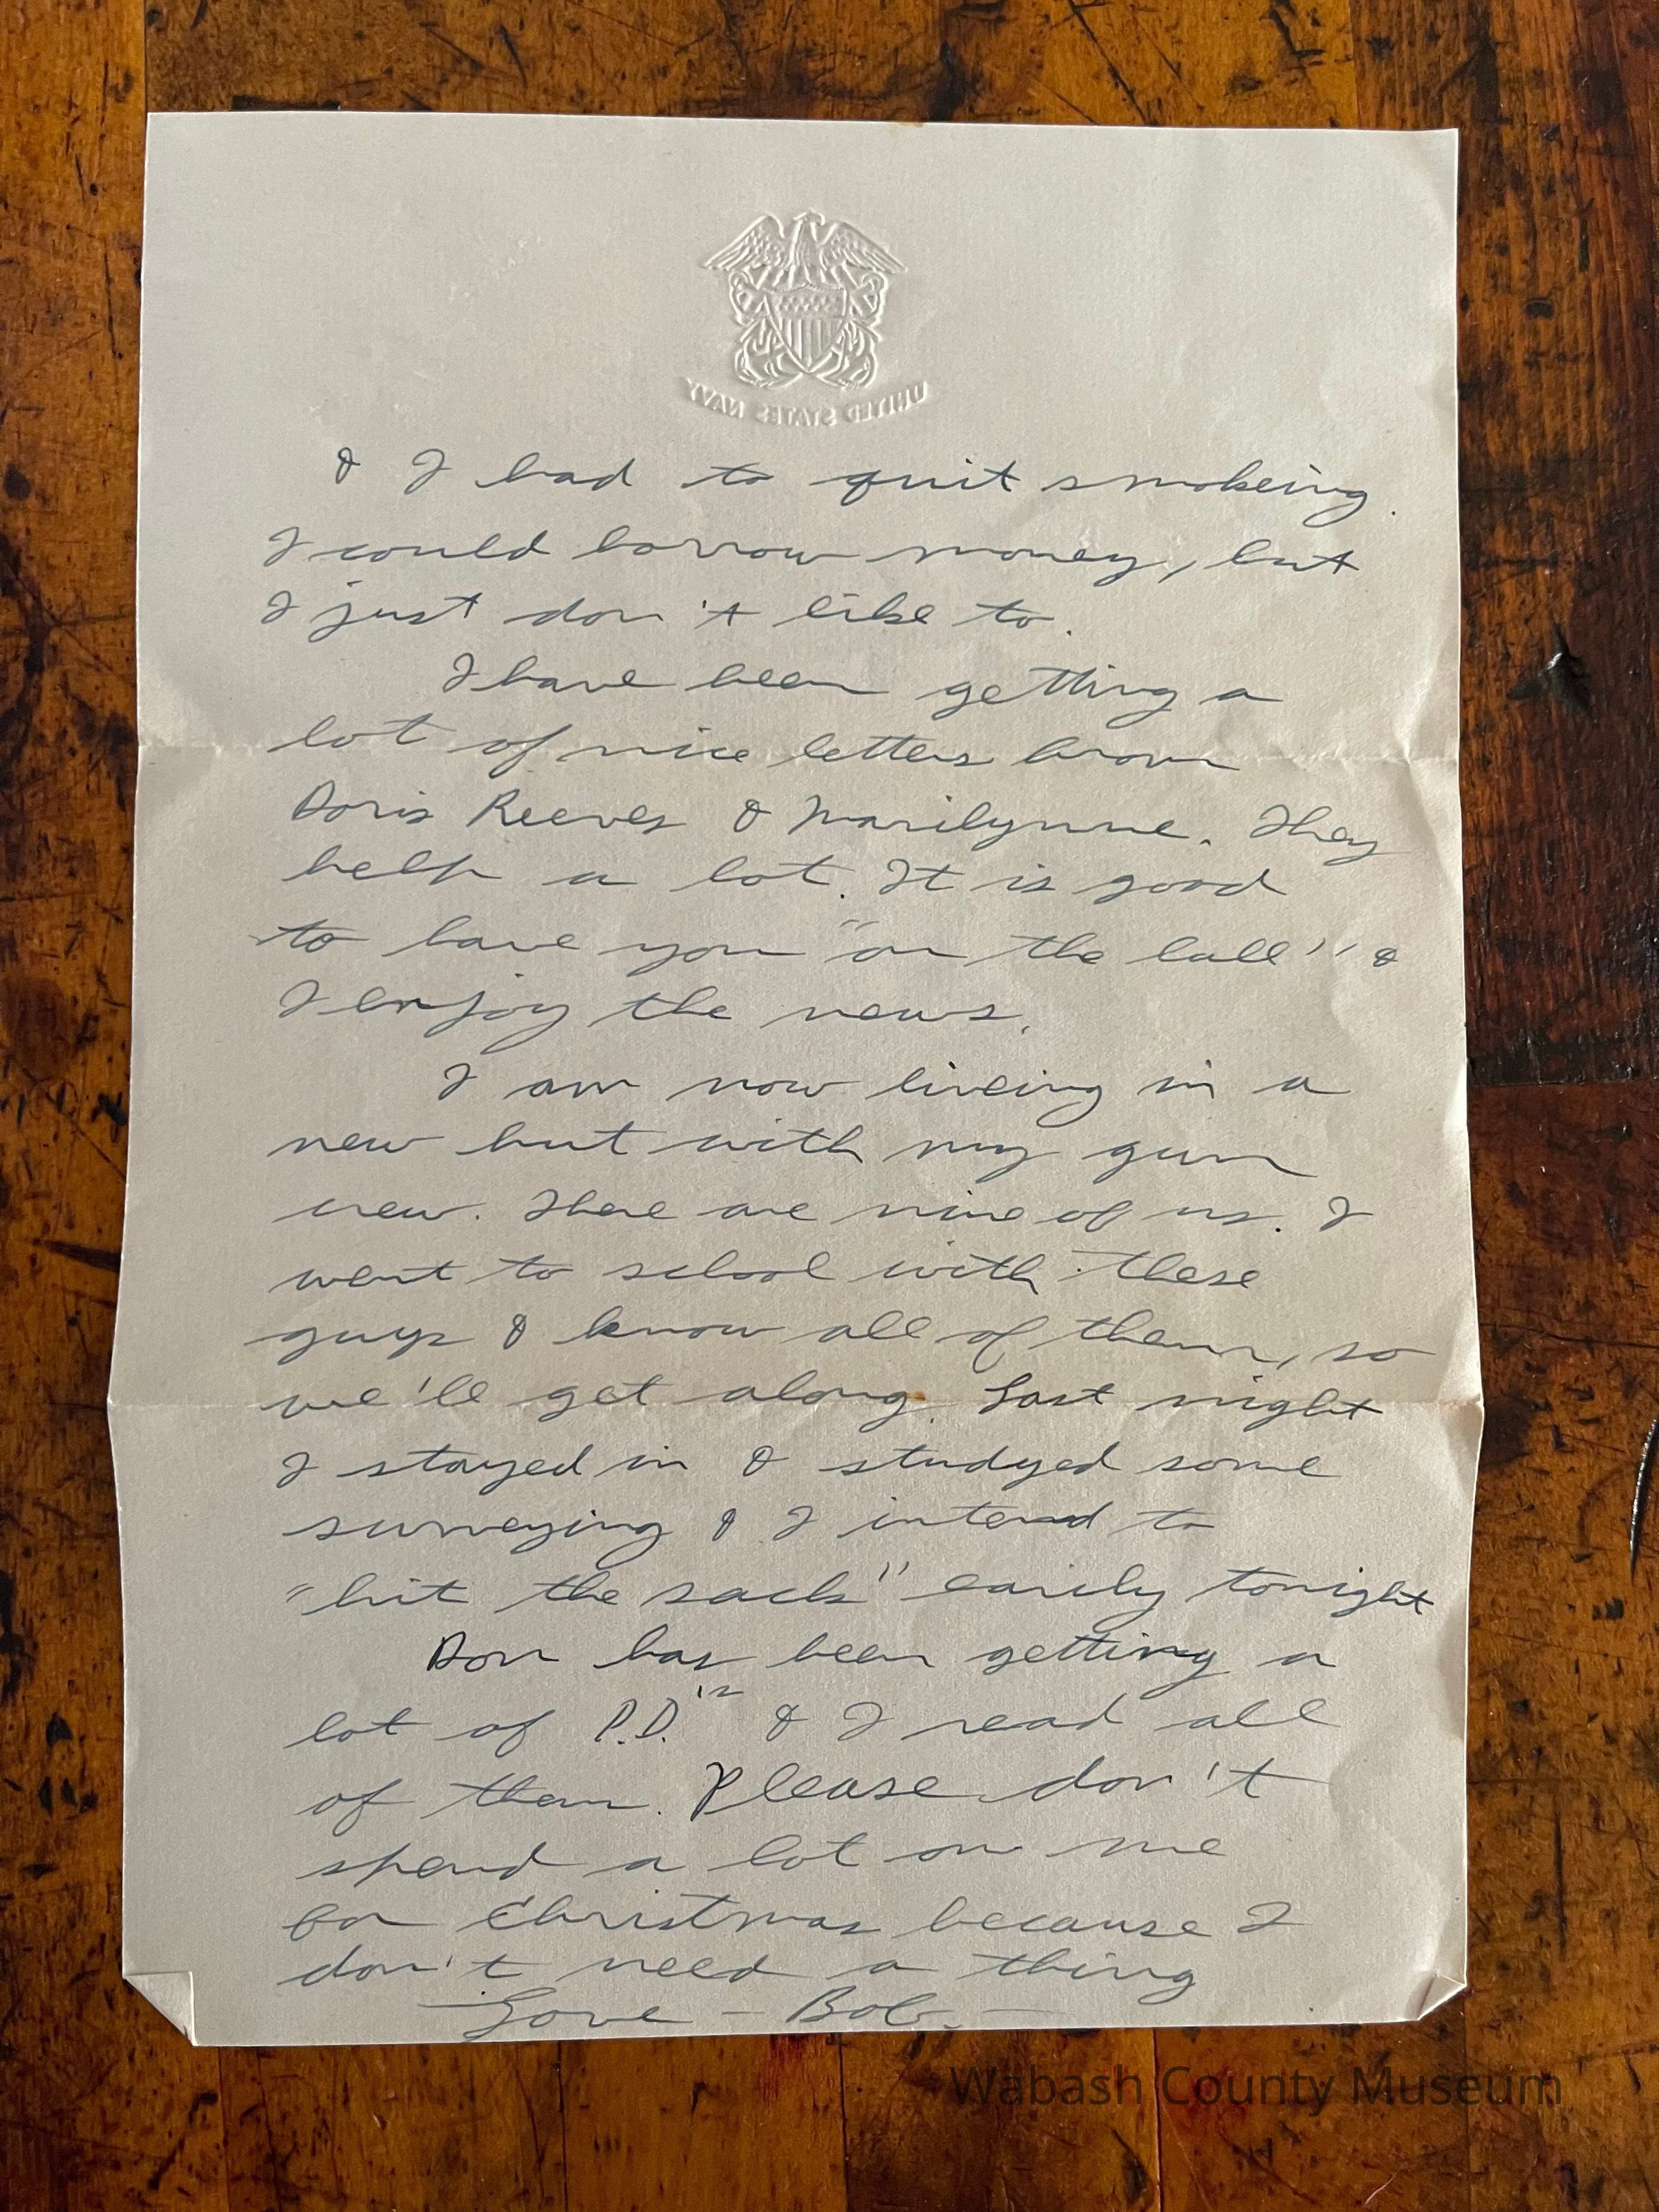 UNITED STATES NAVY
& I had to quit smokeing.
I could borrow money, but
I just don't like to.
I have been getting a
lot of nice letters from
Doris Reeves & Marilynne. They
help a lot. It is good
to have you "on the ball" &
I enjoy the news.
I am now liveing in a
new hut with my gun
crew. There are nine of us. I
went to school with these
guys & know all of them, so
we'll get along. Last night
I stayed in & studyed some
surveying & I intend to
"hit the sack" earily tonight
Don has been getting a
lot of P.D.'s & I read all
of them. Please don't
spend a lot on me
for Christmas because I
don't need a thing
Love - Bob. -
Wabash County Museum